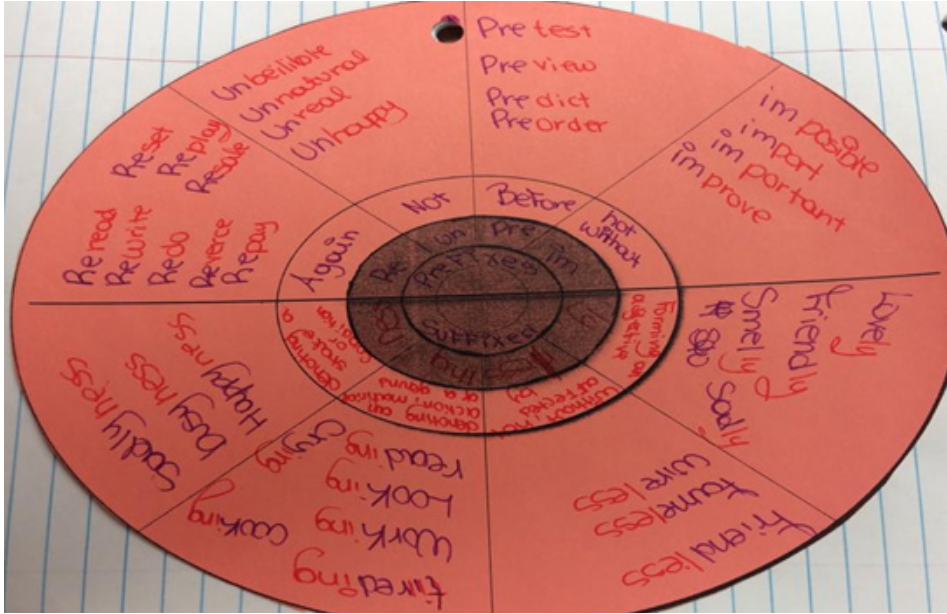 Pretest
Preview
Predict
Preorder
imposible
import
important
improve
Unbeilibale
Unnatural
Unreal
Unhappy
Reset
Replay
Resale
Reread
Rewrite
Redo
Reverce
Repay
Again
Not
Before
not
without
Re
un
pre
im
Prefixes
suffixes
ly
less
ing
ness
Forming an
adjective
without; not
affected
by
denoting an
action, material
or a gerund
denoting a
state or
condition
Lovely
friendly
Smelly
Sadly
friendless
fameless
wireless
reading
crying
Looking
working
cooking
tireding
Happyness
busyness
sadlyness